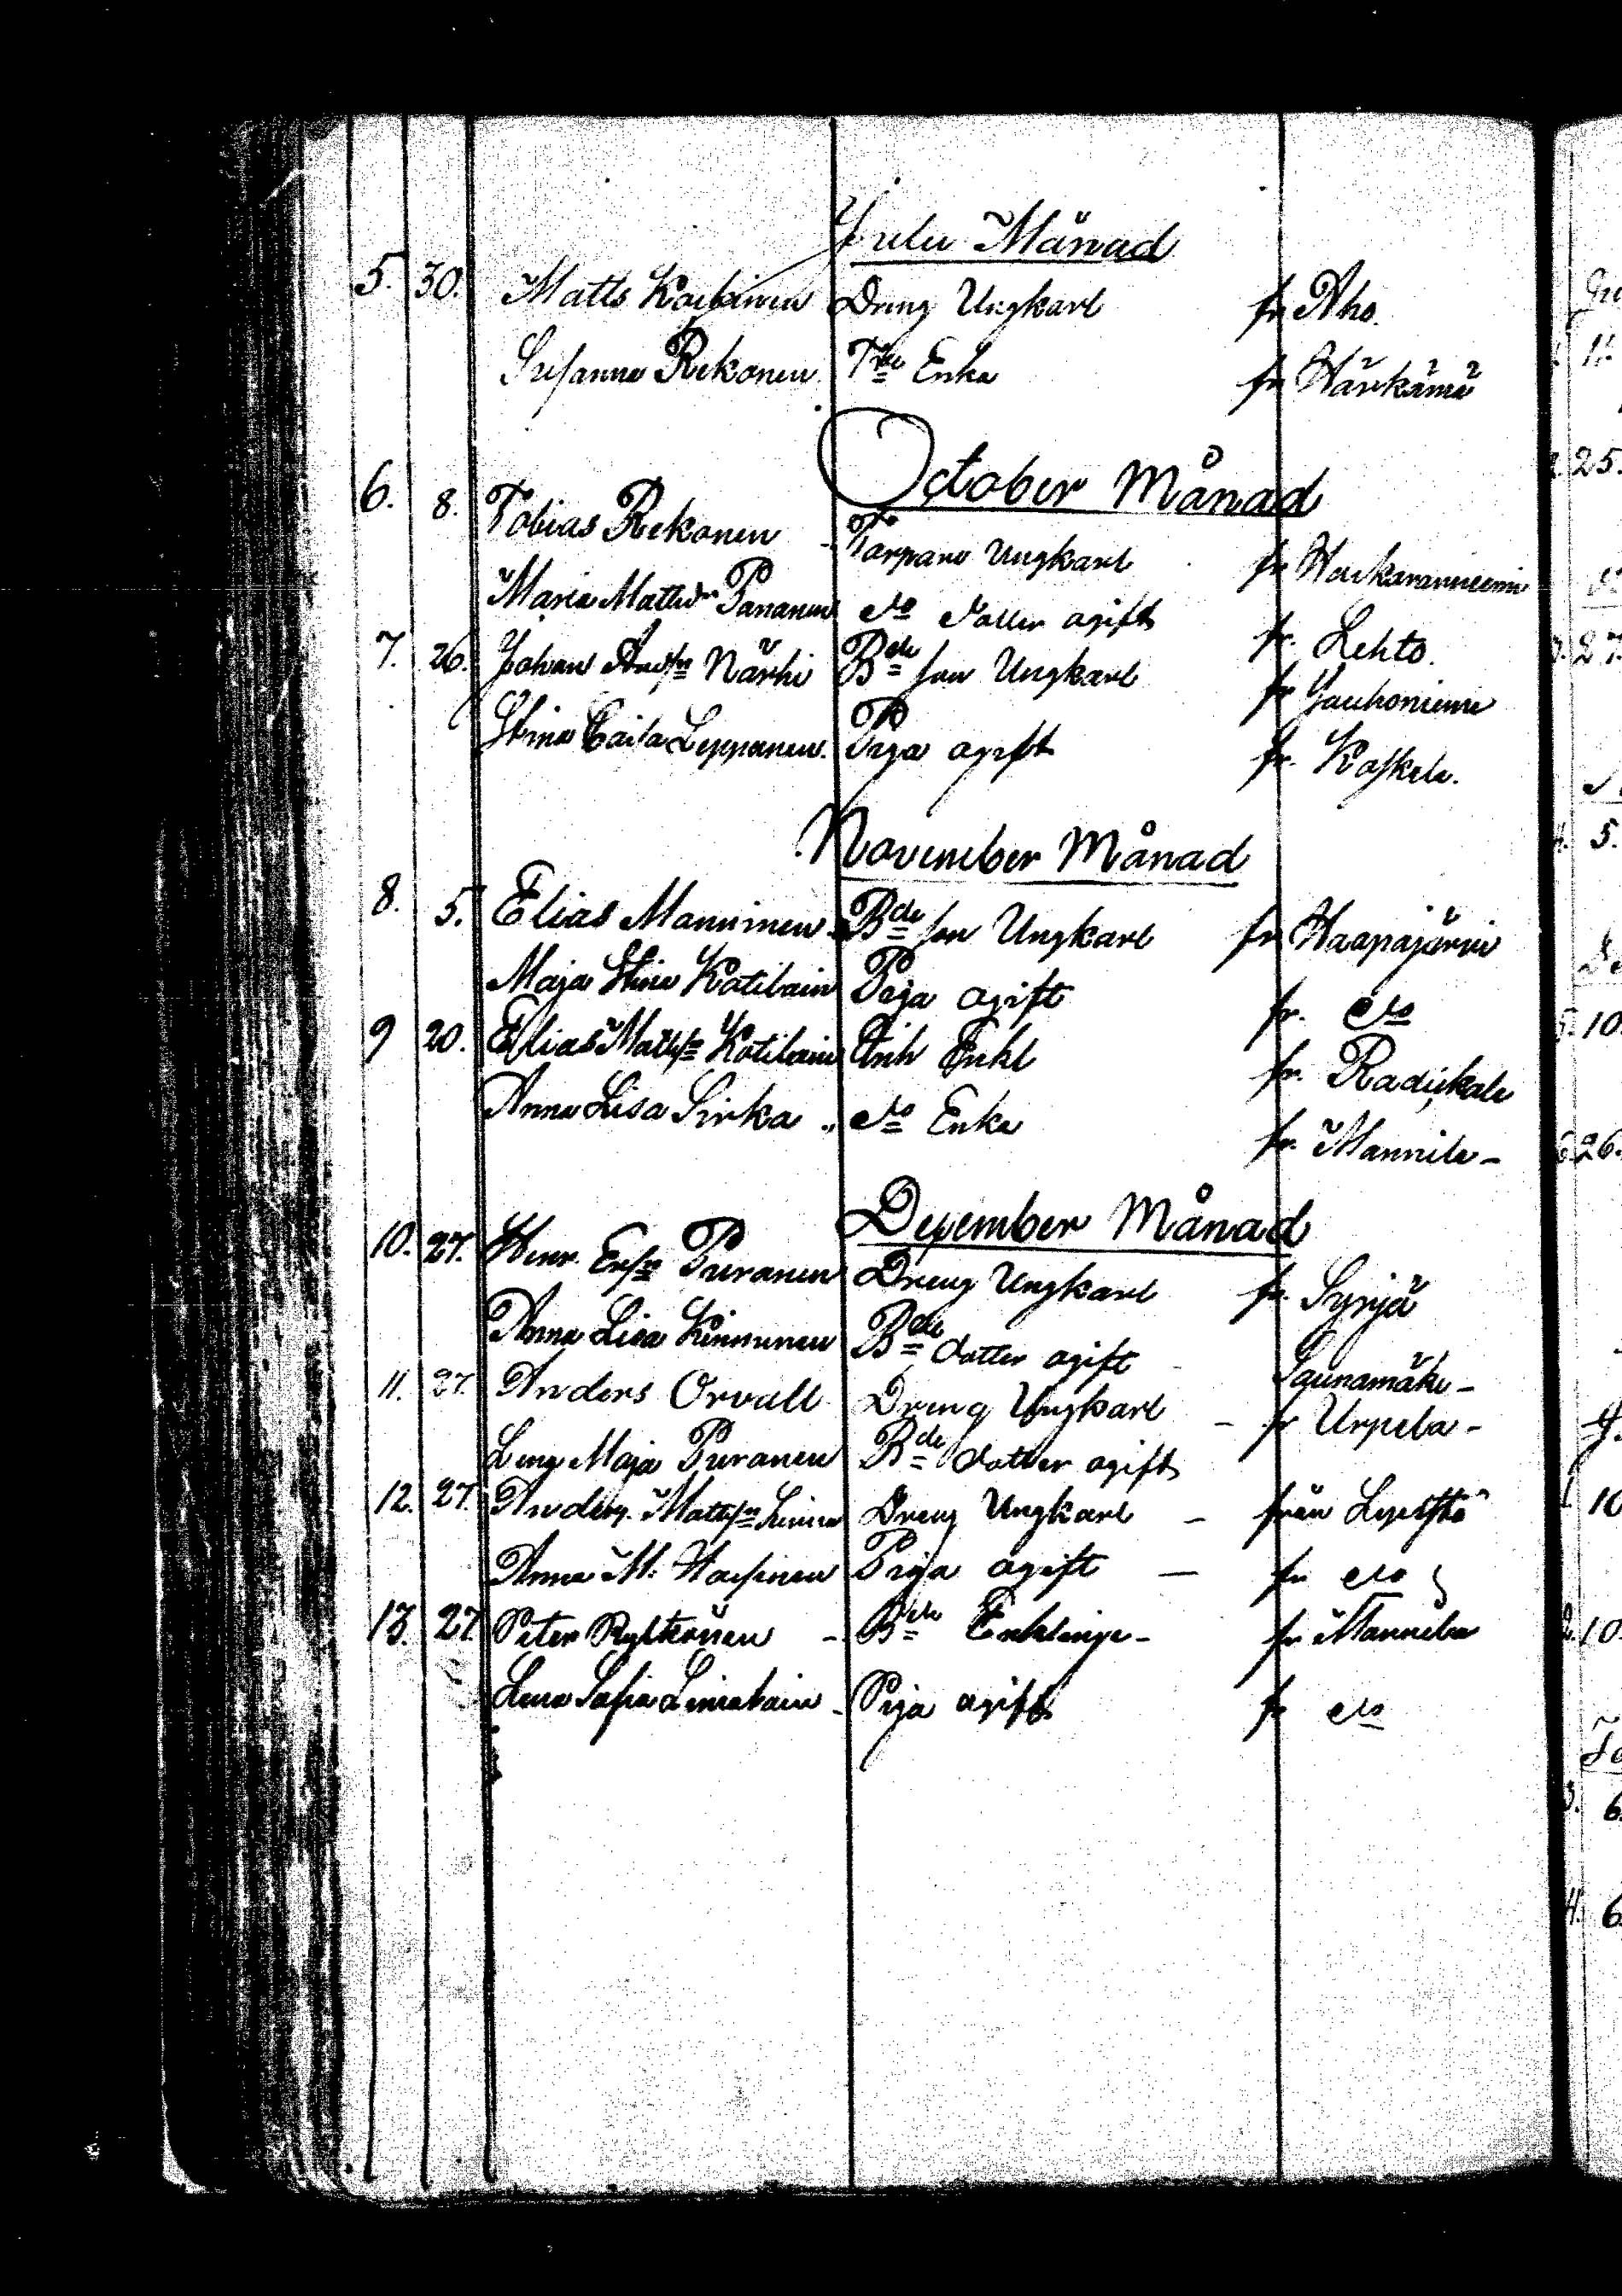 Julu Månad
5. 30. Matts Dreng Ungkarl fr Aho.
Susanna Rekonen Enka fr Härkämä
October Månad
6. 8. Tobias Rekonen Torpare Ungkarl fr
Maria Mattsdr Pananen do dotter ogift fr. Lehto.
7. 26. Johan Närhi Bde son Ungkarl fr Jauhoniemi
Stina Caisa Leppänen. Piga ogift fr. Koskela.
November Månad
8. 5. Elias Manninen Bde son Ungkarl fr Haapajärvi
Maja Stina Kotilain Piga ogift fr. do
9 20. Elias Mattsn Kotilain Inh Enkl fr.
Anna Lisa Sirka do Enka fr. Mannila -
December Månad
10. 27. Henr. Ersn Puranen Dreng Ungkarl fr. Syrjä
Anna Lisa Kinnunen Bde dotter ogift Saunamäki -
11. 27. Anders Orvall Dreng Ungkarl - fr Urpela -
Lena Maja Puranen Bde dotter ogift
12. 27. Anders Mattsn Dreng Ungkarl - från
Anna M. Piga ogift - fr do
13. 27. Peter Rytkönen - Bde Enklinge - fr Mannila
Lena Sofia Piga ogift fr do